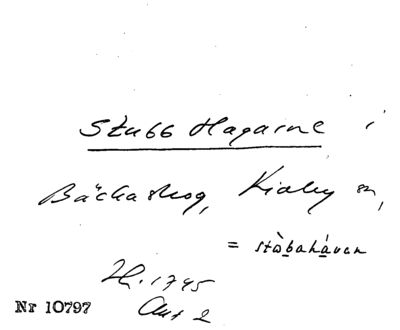 Stubb Hagarne i
Bäckaskog, Kiaby sn,
= stàbahávan
1745
Akt 2
Nr 10797